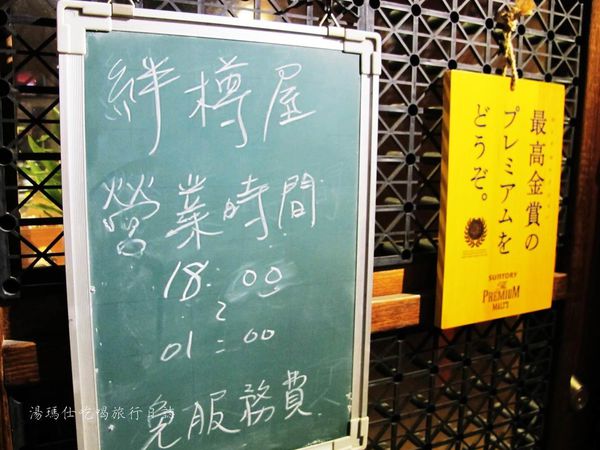 絆樽屋
營業時間
18:00
~
01:00
免服務費
最高金賞の
プレミアムを
どうぞ。
SUNTORY
The
PREMIUM
MALT'S
湯瑪仕吃喝旅行日誌